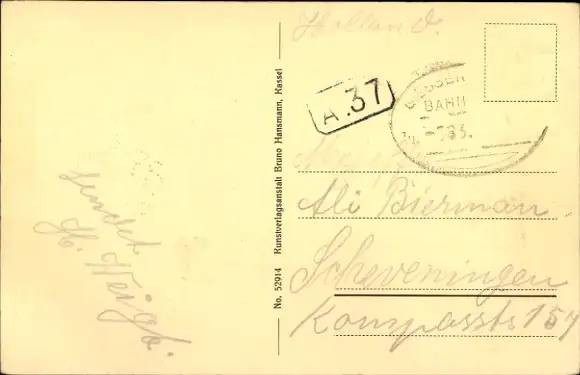 Holland.
A.37
BAHN
sendet
H. Weigl.
No. 52914 Kunstverlagsanstalt Bruno Hansmann, Kassel
Ali Bierman
Scheveningen
Kompassts 157